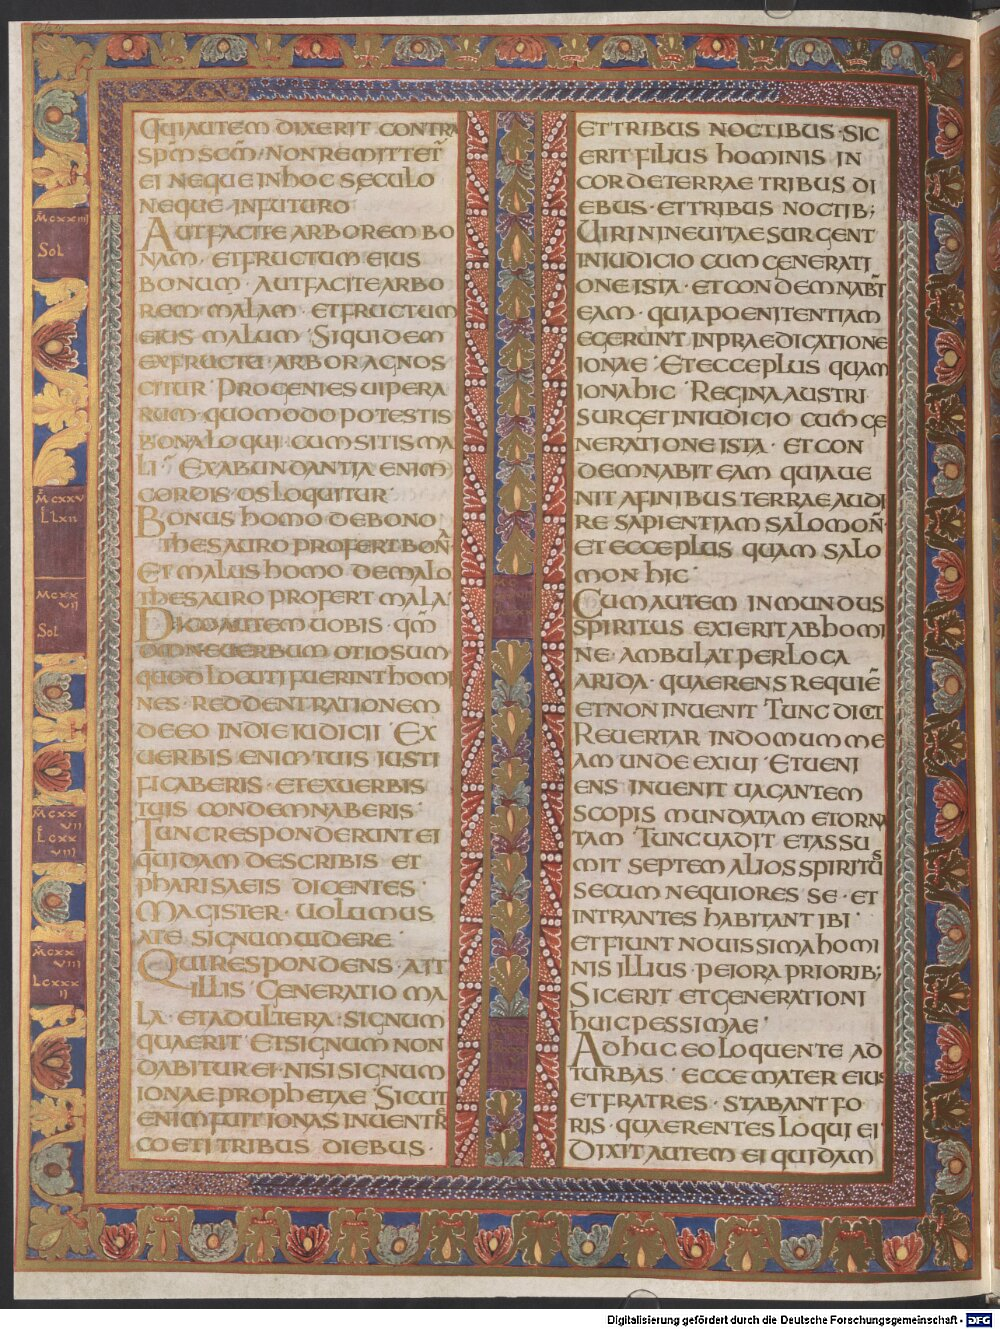 QUIAUTEM DIXERIT CONTRA
SPM SCM NON REMITTET
EI NEQUE IN HOC SAECULO
NEQUE IN FUTURO
AUT FACITE ARBOREM BO
NAM · ET FRUCTUM EIUS
BONUM · AUT FACITE ARBO
REM MALAM · ET FRUCTUM
EIUS MALUM · SIQUIDEM
EX FRUCTU ARBOR AGNOS
CITUR · PROGENIES UIPERA
RUM · QUOMODO POTESTIS
BONA LOQUI · CUM SITIS MA
LI · EX ABUNDANTIA ENIM
CORDIS · OS LOQUITUR ·
BONUS HOMO DE BONO
THESAURO PROFERT BON A
ET MALUS HOMO DE MALO
THESAURO PROFERT MALA
DICO AUTEM UOBIS · QM
OMNE UERBUM OTIOSUM
QUOD LOCUTI FUERINT HOMI
NES · REDDENT RATIONEM
DE EO IN DIE IUDICII · EX
UERBIS ENIM TUIS IUSTI
FICABERIS · ET EX UERBIS
TUIS CONDEMNABERIS ·
TUNC RESPONDERUNT EI
QUIDAM DE SCRIBIS ET
PHARISAEIS DICENTES ·
MAGISTER · UOLUMUS
A TE SIGNUM UIDERE ·
QUI RESPONDENS · AIT
ILLIS · GENERATIO MA
LA · ET ADULTERA · SIGNUM
QUAERIT · ET SIGNUM NON
DABITUR EI · NISI SIGNUM
IONAE PROPHETAE · SICUT
ENIM FUIT IONAS IN UENTR
CŒTI TRIBUS DIEBUS ·
ET TRIBUS NOCTIBUS · SIC
ERIT FILIUS HOMINIS IN
CORDE TERRAE TRIBUS DI
EBUS · ET TRIBUS NOCTIB;
UIRI NINEUITAE SURGENT
IN IUDICIO CUM GENERATI
ONE ISTA · ET CONDEMNABT
EAM · QUIA POENITENTIAM
EGERUNT IN PRAEDICATIONE
IONAE · ET ECCE PLUS QUAM
IONA HIC · REGINA AUSTRI
SURGET IN IUDICIO CUM GE
NERATIONE ISTA · ET CON
DEMNABIT EAM QUIA UE
NIT A FINIBUS TERRAE AUDI
RE SAPIENTIAM SALOMON̄ ·
ET ECCE PLUS QUAM SALO
MON HIC ·
CUM AUTEM INMUNDUS
SPIRITUS EXIERIT AB HOMI
NE · AMBULAT PER LOCA
ARIDA · QUAERENS REQUIĒ
ET NON INUENIT TUNC DICIT
REUERTAR IN DOMUM ME
AM UNDE EXIUI · ET UENI
ENS INUENIT UACANTEM
SCOPIS MUNDATAM ET ORNA
TAM · TUNC UADIT ET ASSU
MIT SEPTEM ALIOS SPIRITUS
SECUM NEQUIORES SE · ET
INTRANTES HABITANT IBI ·
ET FIUNT NOUISSIMA HOMI
NIS ILLIUS · PEIORA PRIORIB;
SIC ERIT ET GENERATIONI
HUIC PESSIMAE ·
ADHUC EO LOQUENTE AD
TURBAS · ECCE MATER EIUS
ET FRATRES · STABANT FO
RIS · QUAERENTES LOQUI EI
DIXIT AUTEM EI QUIDAM
M CXXIIII
SOL
M CXXV
L LXII
M CXX
VII
SOL
M CXX
VII
L CXX
VIII
M CXX
VIII
L CXXX
II
Digitalisierung gefördert durch die Deutsche Forschungsgemeinschaft - DFG